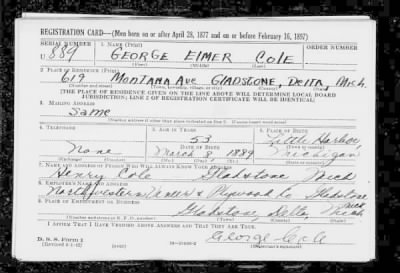 REGISTRATION CARD—(Men born on or after April 28, 1877 and on or before February 16, 1897)
SERIAL NUMBER 1. NAME (Print) ORDER NUMBER
U 889 GEORGE ELMER COLE
(First) (Middle) (Last)
2. PLACE OF RESIDENCE (Print)
619 Montana Ave GLADSTONE, Delta, Mich.
(Number and street) (Town, township, village, or city) (County) (State)
[THE PLACE OF RESIDENCE GIVEN ON THE LINE ABOVE WILL DETERMINE LOCAL BOARD
JURISDICTION; LINE 2 OF REGISTRATION CERTIFICATE WILL BE IDENTICAL]
3. MAILING ADDRESS
Same
[Mailing address if other than place indicated on line 2. If same insert word same]
4. TELEPHONE 5. AGE IN YEARS 6. PLACE OF BIRTH
53 Little Harbor
DATE OF BIRTH
None March 8 1889 Michigan
(Exchange) (Number) (Mo.) (Day) (Yr.) (State or country)
7. NAME AND ADDRESS OF PERSON WHO WILL ALWAYS KNOW YOUR ADDRESS
Henry Cole Gladstone Mich
8. EMPLOYER'S NAME AND ADDRESS
Northwestern Veneer & Plywood Co Gladstone
Mich
9. PLACE OF EMPLOYMENT OR BUSINESS
Gladstone Delta Mich
(Number and street or R. F. D. number) (Town) (County) (State)
I AFFIRM THAT I HAVE VERIFIED ABOVE ANSWERS AND THAT THEY ARE TRUE.
D. S. S. Form 1
George Cole